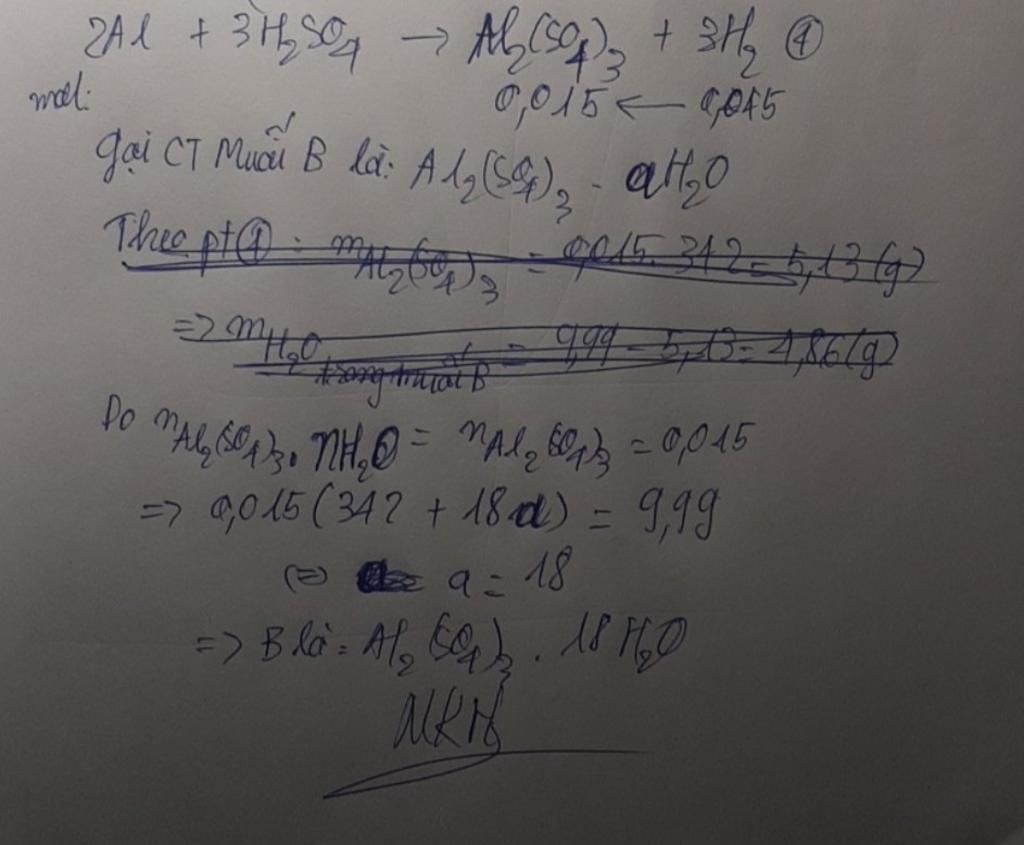 2Al + 3H₂SO₄ → Al₂(SO₄)₃ + 3H₂ ①
mol: 0,015 ← 0,045
Gọi CT Muối B là: Al₂(SO₄)₃ . aH₂O
Theo pt ① : mAl₂(SO₄)₃ = 0,015.342 = 5,13 (g)
=> mH₂O trong muối B = 9,99 - 5,13 = 4,86 (g)
Do nAl₂(SO₄)₃.nH₂O = nAl₂(SO₄)₃ = 0,015
=> 0,015(342 + 18a) = 9,99
(=) a = 18
=> B là: Al₂(SO₄)₃ . 18H₂O